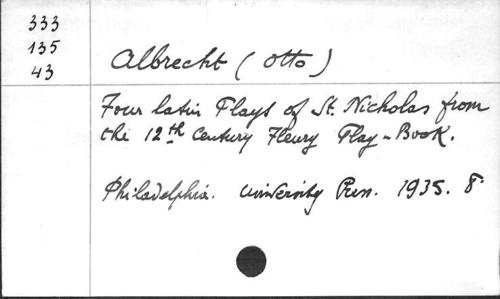 333
135
43
Albrecht (Otto)
Four latin Plays of St. Nicholas from
the 12th Century Fleury Play-Book.
Philadelphia. University Press. 1935. 8°